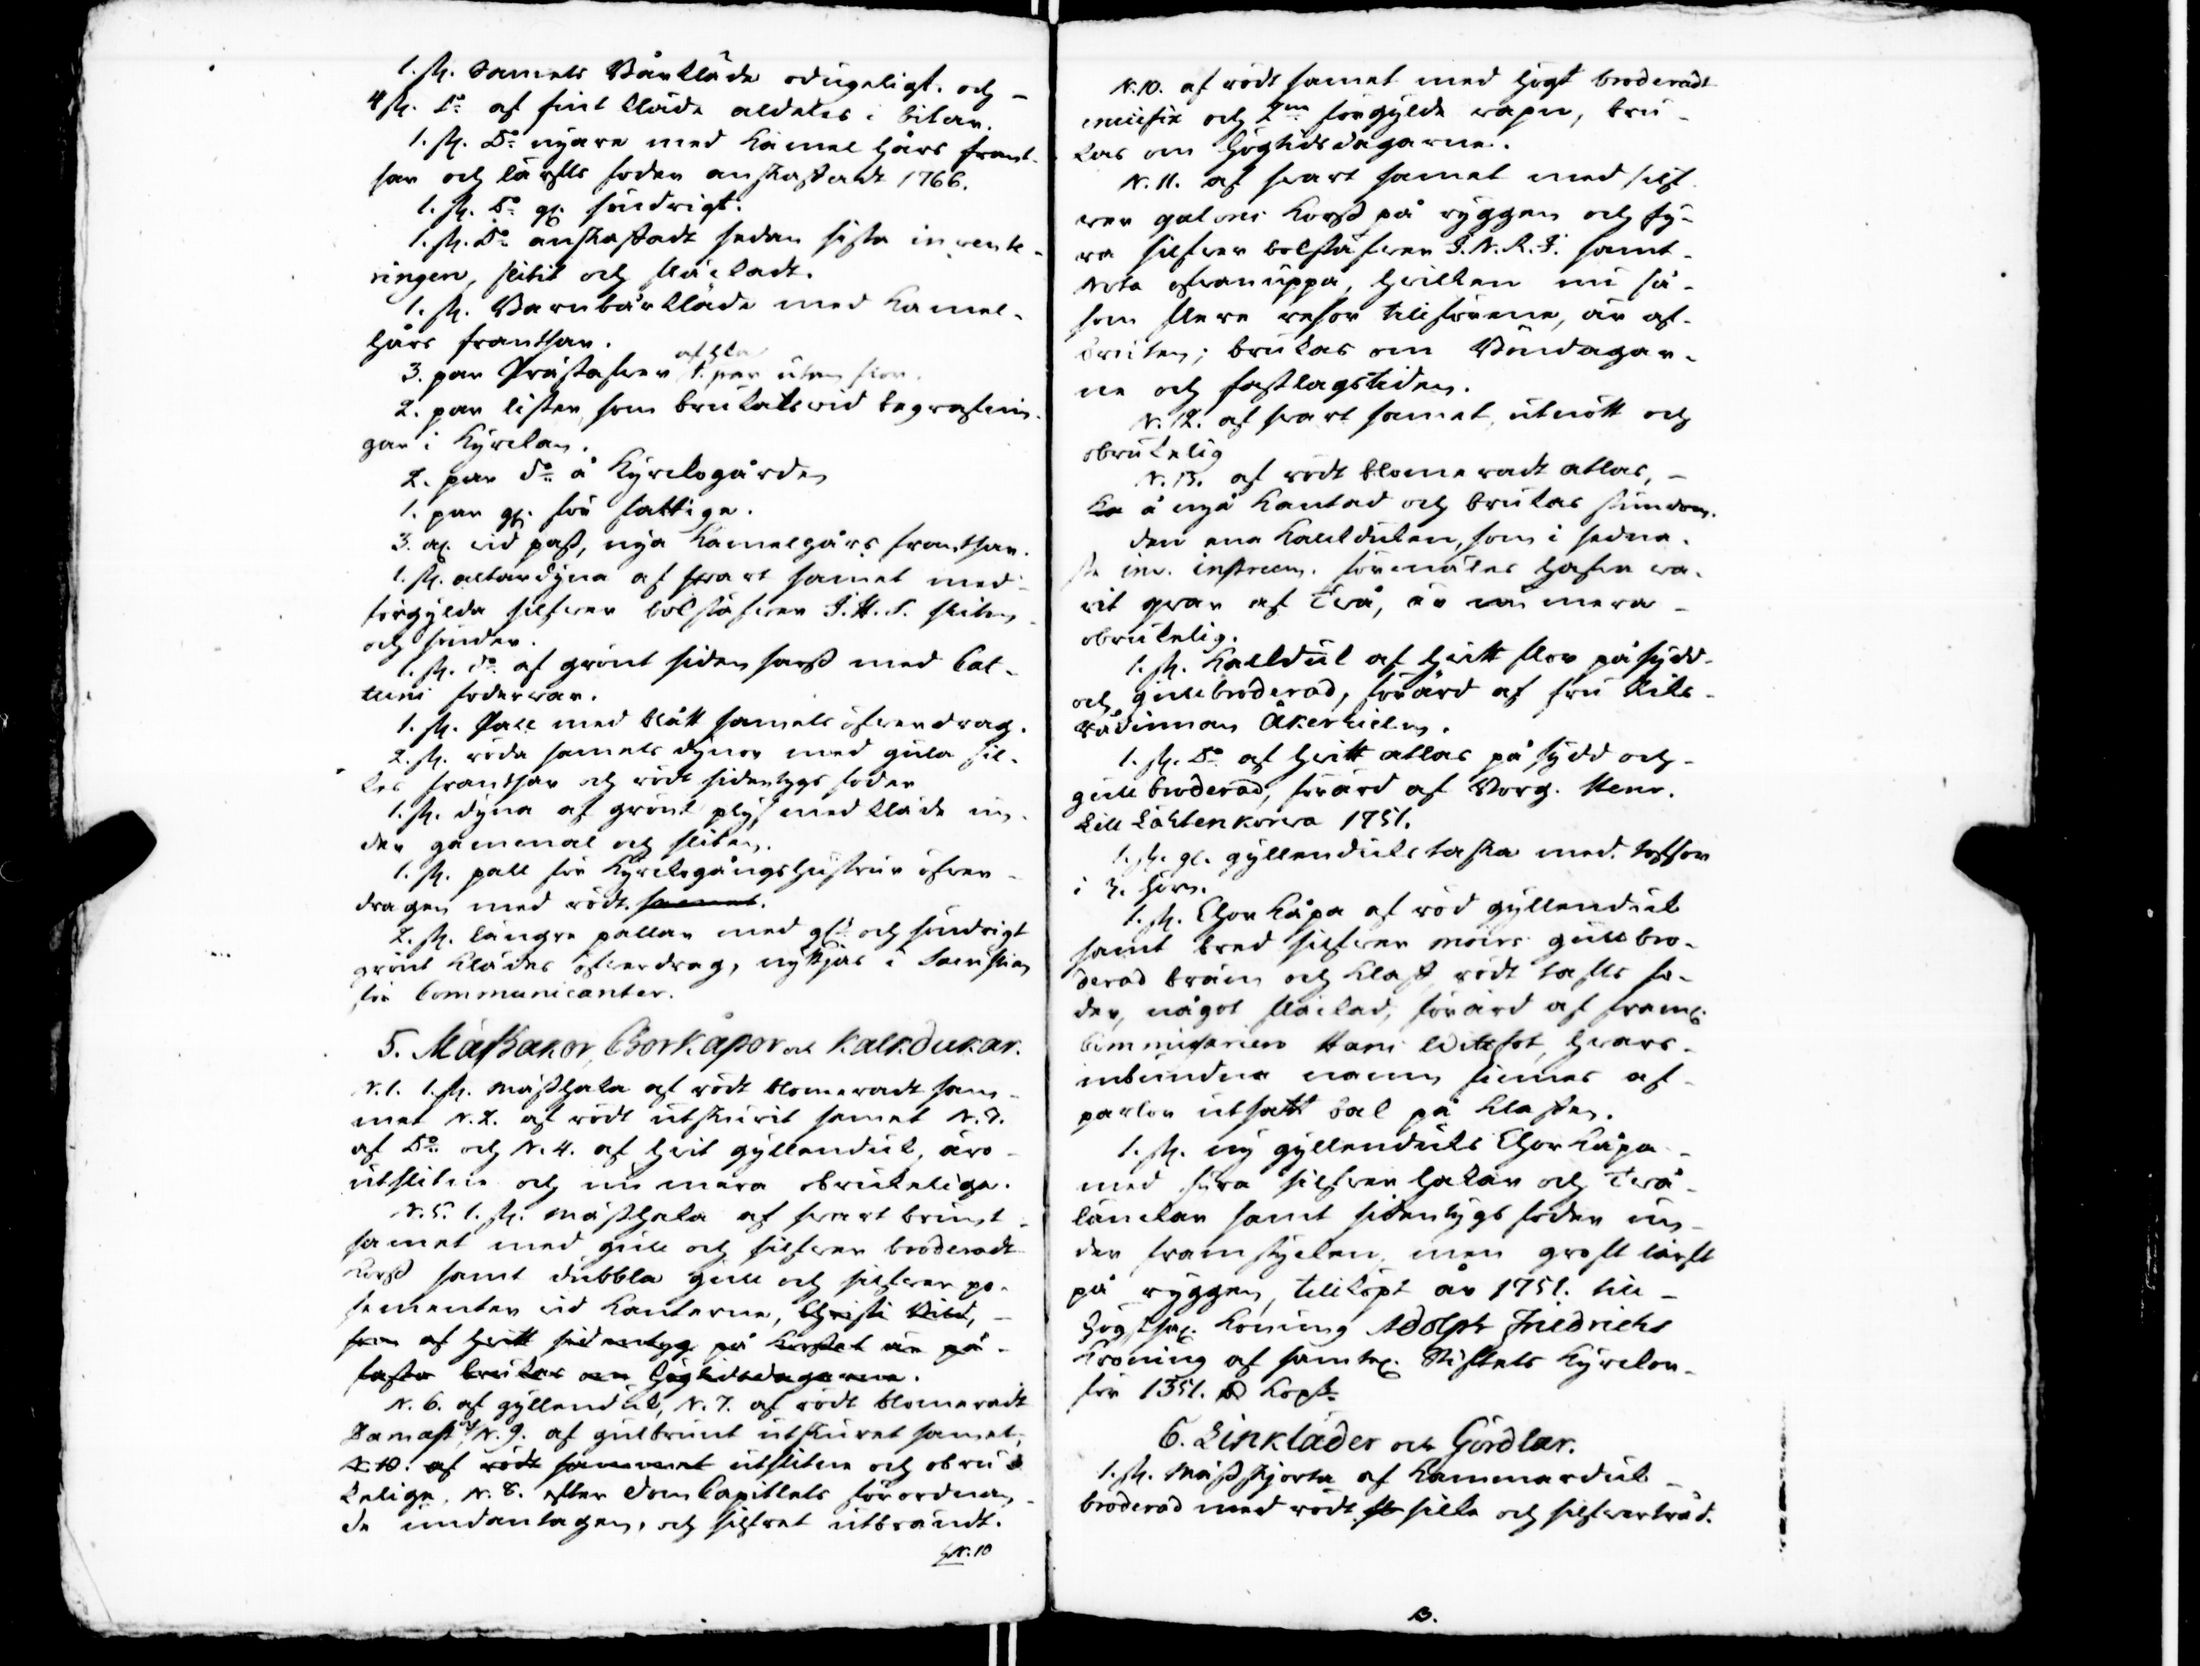 1. st. Samets Bårkläde odugeligt. och
4 st. Do af fint kläde aldeles i bitar.
1. st. Do nyare med Kamel hårs frant-
sar och lärfts foder anskaffadt 1766.
1. st. Do gl. söndrigt.
1. st. Do anskaffadt sedan sista invente-
ringen, slitit och fläckadt.
1. st. Barnbårkläde med Kamel-
hårs frantsar.
3. par Prästafwer 1. par utan flor.
2. par lister, som brukats wid begrafnin-
gar i Kyrckan.
2. par do å Kyrckogården
1. par gl. för fattige.
3. al. wid pass, nya Kamelhårs frantsar.
1. st. altardyna af swart samet med
förgylda silfwer bokstäfwer J.H.S. sliten
och sönder.
1. st. do af grönt siden sars med Cat-
tuns foderwar.
1. st. Pall med blått samets öfwerdrag.
2. st. röda samets dynor med gula sil-
kes frantsar och rödt sidentygs foder
1. st. dyna af grönt plys med kläde un-
der gammal och sliten.
1. st. pall för Kyrckogångshustrur öfwer-
dragen med rödt samet.
2. st. längre pallar med glt och söndrigt
grönt klädes öfwerdrag, nyttjas i Sacristian
för Communicanter.
5. Mässhakor, Chorkåpor och Kalkdukar.
N.1. 1. st. Mässhaka af rödt blomeradt sam-
met N.2. af rödt utskurit samet N.3.
af Do och N.4. af hwit gyllenduk, äro
utslitne och nu mera obrukelige.
N.5. 1. st. Mässhaka af swart brunt
samet med gull och silfwer broderadt
Korss samt dubbla gull och silfwer po-
sementer wid Kanterne, Christi Bild,
som af hwitt sidentyg på Korsset är på-
fästa brukas om högtidsdagarne.
N.6. af gyllenduk, N.7. af rödt blomeradt
Damast, och N.9. af gulbrunt utskuret samet,
N.10. af rödt sammet utslitne och obru-
kelige. N.8. efter Dom Capitlets förordnan-
de undantagen, och silfret utbrändt.
N.10
N.10. af rödt samet med högt broderadt
crucifix och 2ne förgylde wapn, bru-
kas om högtidsdagarne.
N.11. af swart samet med silf-
wer galons Korss på ryggen och fy-
ra silfwer bokstäfwer J.N.R.J. samt
ofwanuppå, hwilken nu så-
som flere resor tillförene, är af-
bruten; brukas om Böndagar-
ne och fastlagstiden.
N.12. af swart samet, utnött och
obrukelig
N.13. af rödt blomeradt atlas,
å nyå Kantad och brukas stundom.
den ena Kalckduken, som i sedna-
ste inv. instrum. förmäles hafwa wa-
rit gwar af Twå, är nu mera
obrukelig.
1. st. Kalkduk af hwitt flor påsydd
och gullbroderad, förärd af fru Riks-
Rådinnan Åkerhielm.
1. st. Do af hwitt atlas påsydd och
gullbroderad, förärd af Borg. Henr.
Lill Lähtenkorwa 1751.
1. st. gl. gyllenduks taska med tofsor
i 3. hörn.
1. st. Chor Kåpa af röd gyllenduk
samt bred silfwer moirs gullbro-
derad bräm och Klaff, rödt tafts fo-
der, något fläckad, förärd af framl.
Commissarien Hans Wittfot, hwars
inbundne namn finnes af
parlor utsatt bak på Klaffen.
1. st. ny gyllenduks Chor Kåpa
med fyra silfwer hakar och Twå
länckar samt sidentygs foder un-
der framstycken, men groft lärft
på ryggen, tillköpt år 1751. till
Högstsal. Konung Adolph Friedrichs
Kröning af samtel. Stiftets Kyrckor
för 1351. D Kopt
6. Linkläder och Gördlar.
1. st. Mässskjorta af Kammarduk
broderad med rödt silke och silfwertråd.
B.